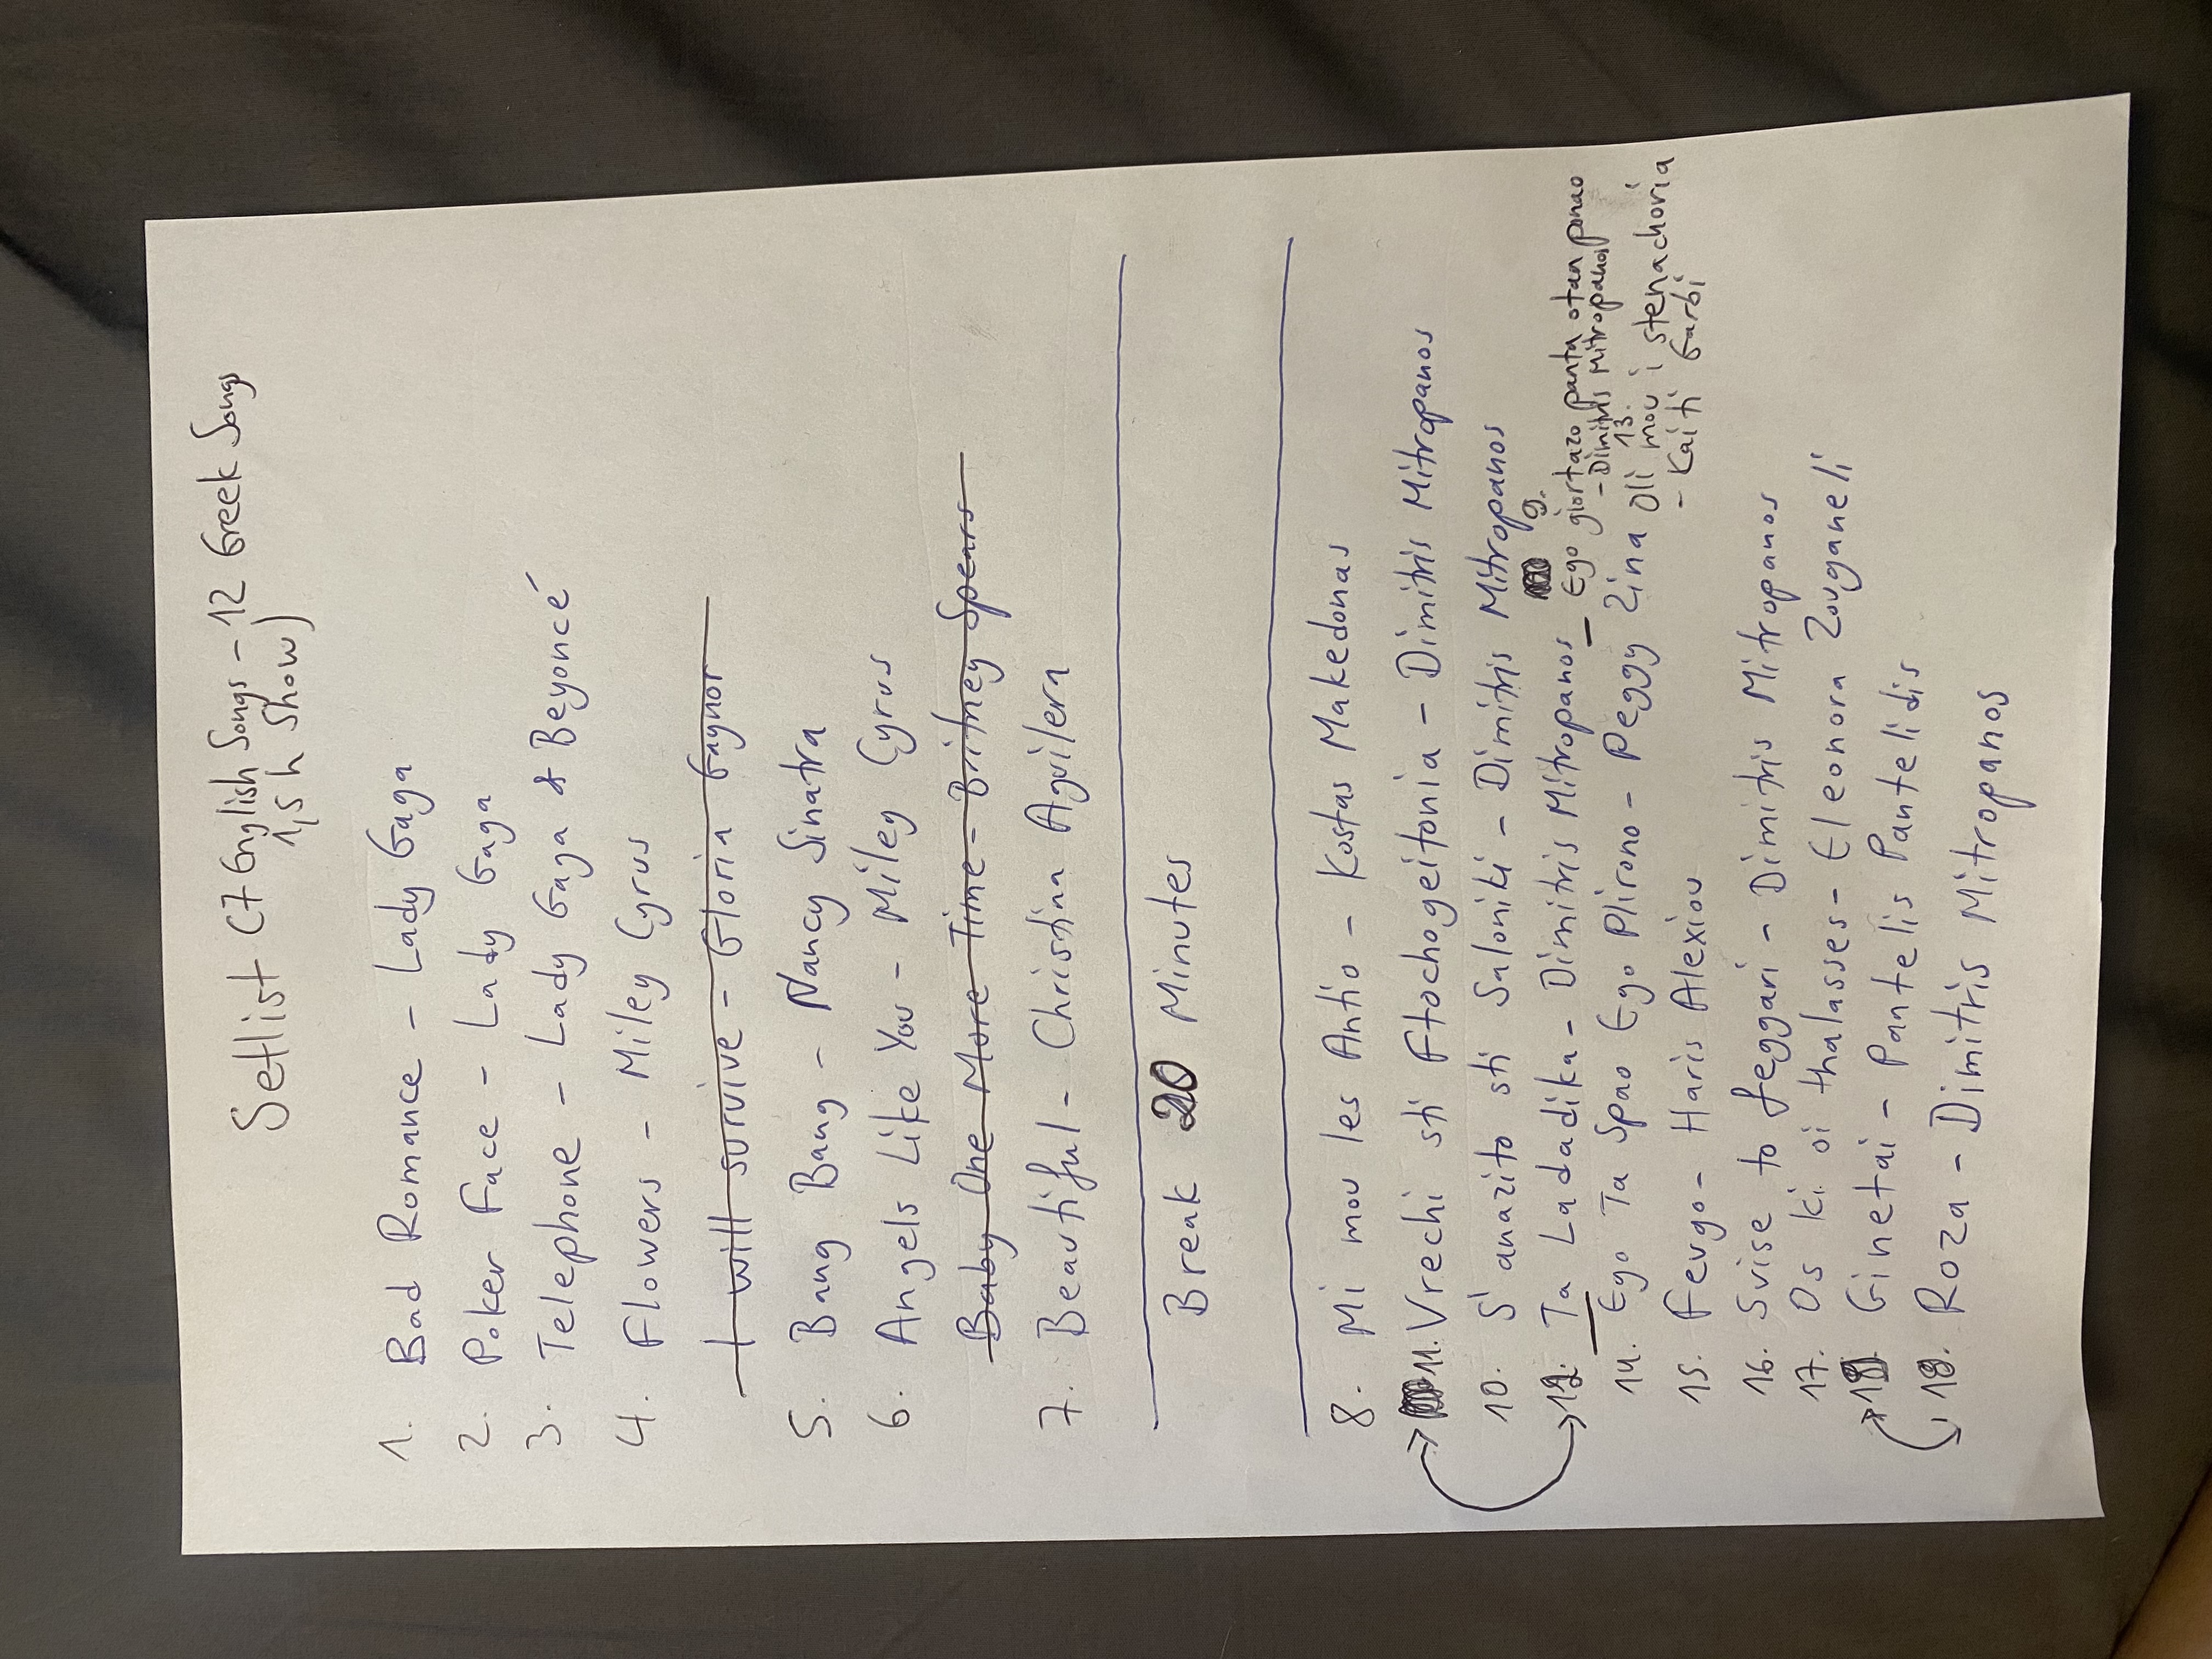 Setlist (7 English Songs - 12 Greek Songs
1,5 h Show)
1. Bad Romance - Lady Gaga
2. Poker Face - Lady Gaga
3. Telephone - Lady Gaga & Beyoncé
4. Flowers - Miley Cyrus
I will survive - Gloria Gaynor
5. Bang Bang - Nancy Sinatra
6. Angels Like You - Miley Cyrus
Baby One More Time - Britney Spears
7. Beautiful - Christina Aguilera
Break 20 Minutes
8. Mi mou les Antio - Kostas Makedonas
11. Vrechi sti Ftochogeitonia - Dimitris Mitropanos
10. S'anazito sti Saloniki - Dimitris Mitropanos
12. Ta Ladadika - Dimitris Mitropanos
9.
Ego giortazo panta otan ponao
- Dimitris Mitropanos
14. Ego Ta Spao Ego Plirono - Peggy Zina
13.
Oli mou i stenachoria
- Kaiti Garbi
15. Fevgo - Haris Alexiou
16. Svise to feggari - Dimitris Mitropanos
17. Os ki oi thalasses - Eleonora Zouganeli
Ginetai - Pantelis Pantelidis
18. Roza - Dimitris Mitropanos